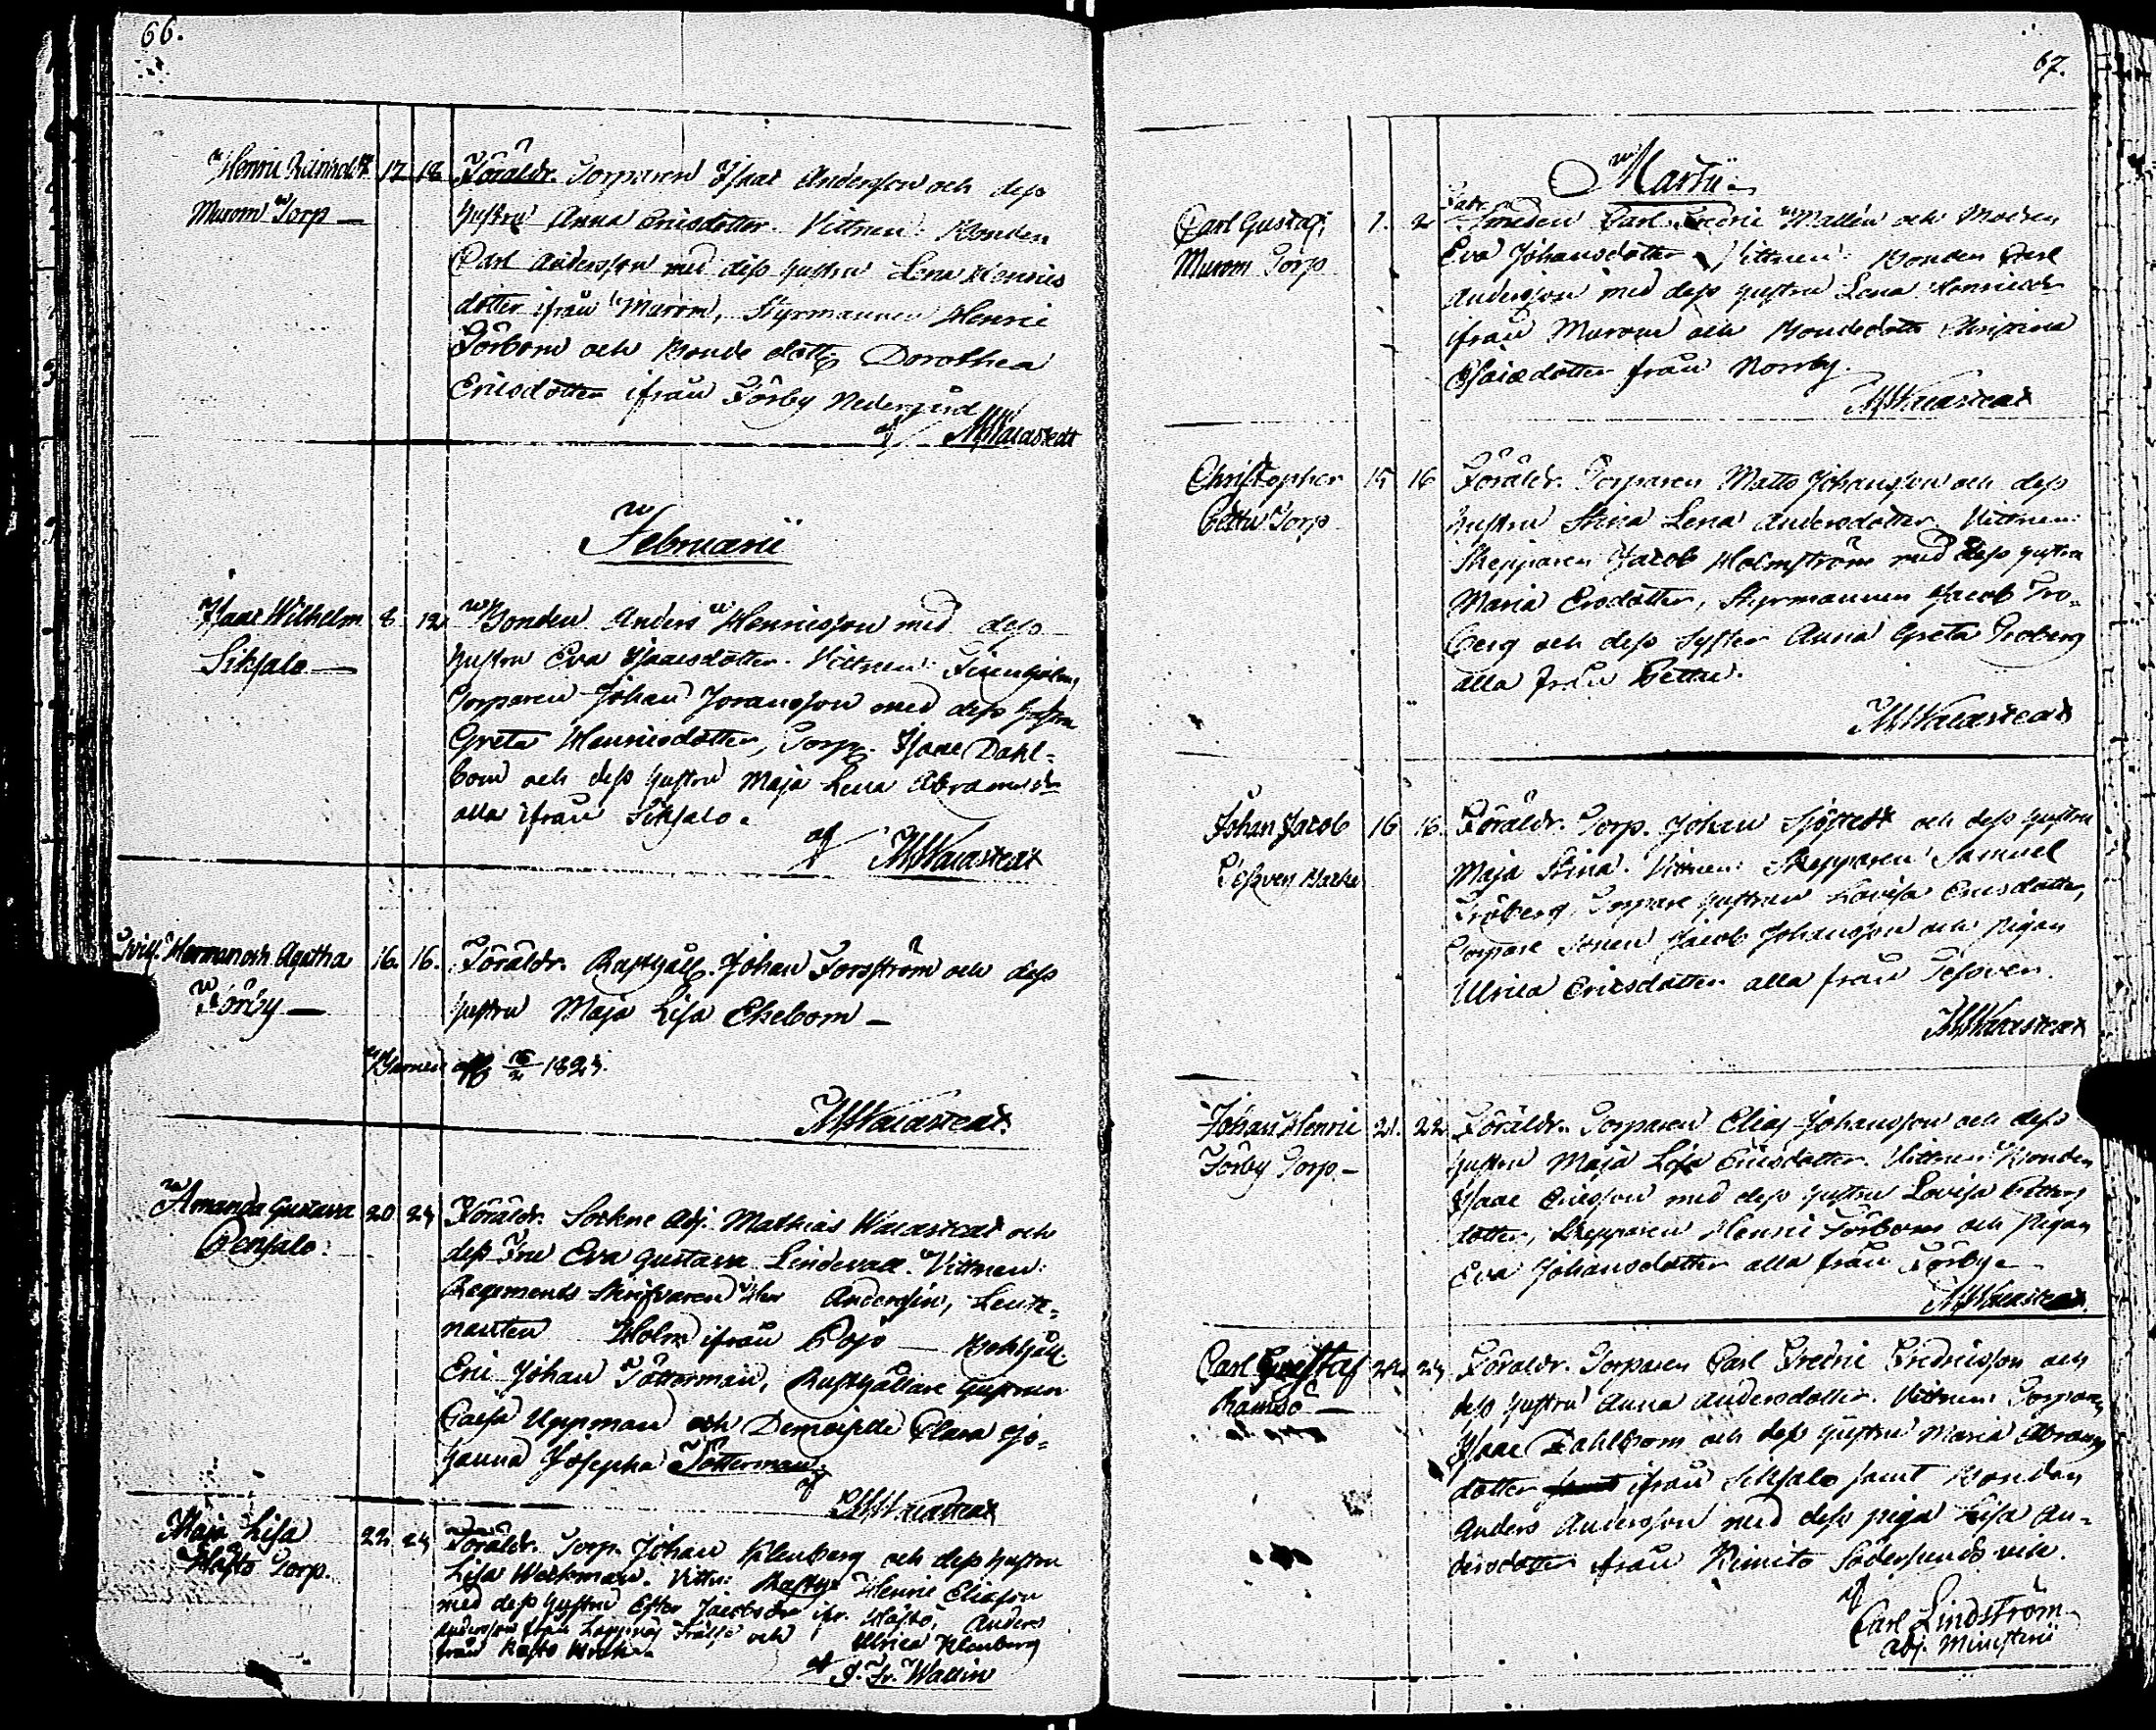 66.
Henric Reinholdt 17 18 Föräldr. Torparen Isaac Andersson och dess
Murom Torp — hustru Anna Ericsdotter. Vittnen: Bonden
Carl Andersson med dess hustru Lena Henrics
dotter ifrån Murom, Styrmannen Henric
Förbom och Bonde dott. Dorothea
Ericsdotter ifrån Förby Nedergård
af MWaldstedt
Februarii
Isaac Wilhelm 8 12 Bonden Anders Henricsson med dess
Siksalo — hustru Eva Isaacsdotter. Vittnen:
Torparen Johan Joransson med dess hustru
Greta Henricsdotter, Torp. Isaac Dahl-
bom och dess hustru Maja Lena Abramsdr
alla ifrån Siksalo.
af MWaldstedt
Tvill. Herman och Agatha 16. 16. Föräldr. Rusthåll. Johan Forsström och dess
Förby — hustru Maja Lisa Ekebom —
Barnen 1823.
MWaldstedt
Amanda Gustava 20 24 Föräldr. Sockne Adj. Mathias Waldstedt och
Pensalo. dess Fru Eva Gustava Lindevall. Vittnen:
Regements Skrifvaren Andersin, Leute-
nanten Holm ifrån Pojo — Bokhåll.
Eric Johan Tötterman, Rusthållare hustrun
Caisa Uppman och Demoiselle Clara Jo-
hanna Josepha Tötterman,
af MWaldstedt
Maja Lisa 22 24 Föräldr. Torp. Johan Klenberg och dess hustru
Torp. Lisa Workman. Vittn: Rusth. Henric Eliasson
med dess hustru Ester Jacobsdr ifr. Anders
Andersson från och Ulrica Klenberg
från
af J. Fr. Wallin
67.
Martii
Carl Gustaf 1. 2 Smeden Carl Fredric Wallin och Modren
Murom Torp Eva Johansdotter Vittnen: Bonden Carl
Andersson med dess hustru Lena Henricsdr
ifrån Murom och Bondedottr Christina
Esaiædotter från Norrby.
MWaldstedt
Christopher 15 16 Föräldr. Torparen Matts Johansson och dess
Pettu Torp hustru Stina Lena Andersdotter Vittnen:
Skepparen Jacob Holmström med dess hustru
Maria Ersdotter, Styrmannen Jacob Fro-
berg och dess Syster Anna Greta Froberg
alla från Pettu.
MWaldstedt
Johan Jacob 16 16. Föräldr. Torp. Johan Sjöstedt och dess hustru
Tessven Backa Maja Stina. Vittnen: Skepparen Samuel
Fröberg, Torpare hustrun Lovisa Ericsdotter,
Torpare Sonen Jacob Johansson och Pigan
Ulrica Ericsdotter alla från Tessven.
MWaldstedt
Johan Henric 21. 22 Föräldr. Torparen Elias Johansson och dess
Förby Torp — hustru Maja Lisa Ericsdotter. Vittnen Bonden
Isaac Ericsson med dess hustru Lovisa Petters
dotter, Skepparen Henric Förbom och Pigan
Eva Johansdotter alla från Förby —
MWaldstedt
Carl Gustaf 22. 24 Föräldr. Torparen Carl Fredric Fredricsson och
Ramsö — dess hustru Anna Andersdotter. Vittnen: Torparen
Isaac Dahlbom och dess hustru Maria Abrams
dotter ifrån Siksalo samt Bonden
Anders Andersson med dess piga Lisa An-
dersdotter från Kimito Södersunds vik.
af
Carl Lindström
Adj. Ministerii